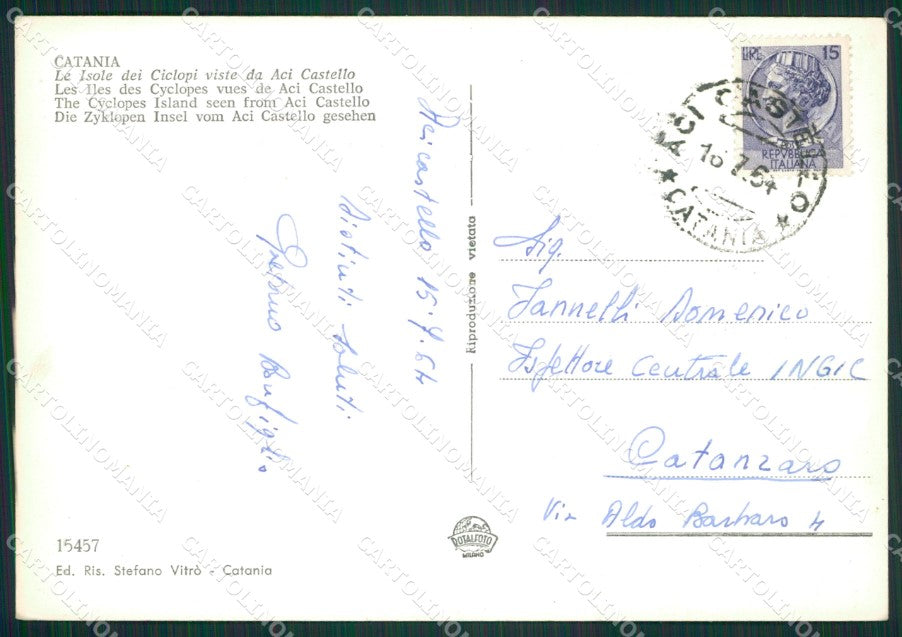 CATANIA
Le Isole dei Ciclopi viste da Aci Castello
Les Iles des Cyclopes vues de Aci Castello
The Cyclopes Island seen from Aci Castello
Die Zyklopen Insel vom Aci Castello gesehen
Acicastello 15.7.64
Distinti saluti
Gaetano Bonfiglio
15457
Ed. Ris. Stefano Vitrò - Catania
Riproduzione vietata
ROTALFOTO
MILANO
LIRE 15
REPVBBLICA
ITALIANA
ACI CASTELLO
16.7.64
CATANIA
Sig.
Iannelli Domenico
Ispettore Centrale INGIC
Catanzaro
Via Aldo Barbaro 4
CARTOLINOMANIA